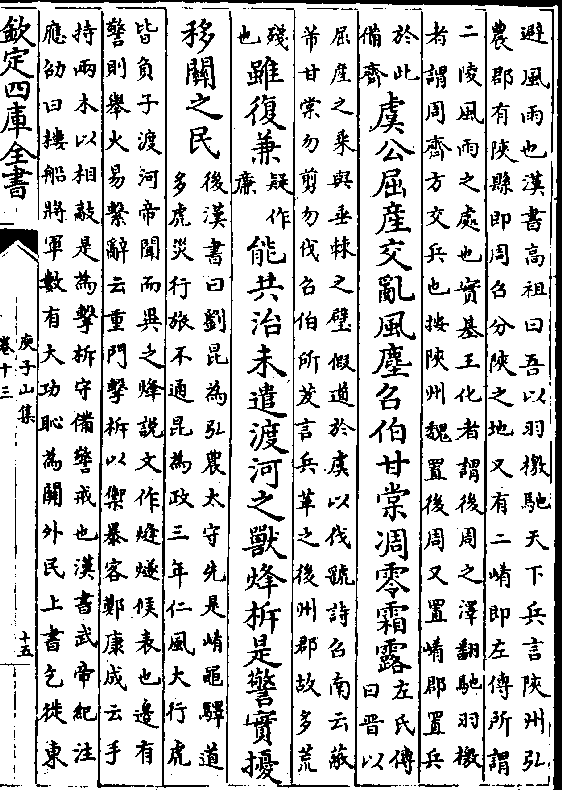 避風雨也漢書高祖曰吾以羽檄馳天下兵言陜州弘
農郡有陜縣即周召分陜之地又有二崤即左傳所謂
二陵風雨之處也實基王化者謂後周之澤翻馳羽檄
者謂周齊方交兵也按陜州魏置後周又置崤郡置兵
於此備齊虞公屈産交亂風塵召伯甘棠凋零霜露左氏傳曰晋以
屈産之乘與垂棘之璧假道於虞以伐虢詩召南云蔽
芾甘棠勿剪勿伐召伯所茇言兵革之後州郡故多荒
殘也雖復兼疑作廉能共治未遣渡河之獸烽柝是警實擾
移關之民
後漢書曰劉昆為弘農太守先是崤黽驛道
多虎災行旅不通昆為政三年仁風大行虎
皆負子渡河帝聞而異之烽說文作㷭燧候表也邊有
警則舉火易繫辭云重門擊柝以禦暴客鄭康成云手
持兩木以相敲是為擊柝守備警戒也漢書武帝紀注
應劭曰樓船將軍數有大功恥為關外民上書乞徙東
欽定四庫全書
庾子山集
卷十三
十五